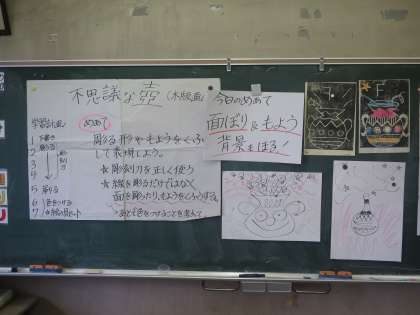 不思議な壺(木版画)
学習計画
1 下書き
2 彫る
3
4
5 刷る
6 色をつける
7
めあて
彫る形やもようをくふう
して表現しよう。
☆彫刻刀を正しく使う
☆線を彫るだけではなく
面を彫ったり、もようをくふうする。
今日のめあて
面ぼり&もよう
背景もほる!